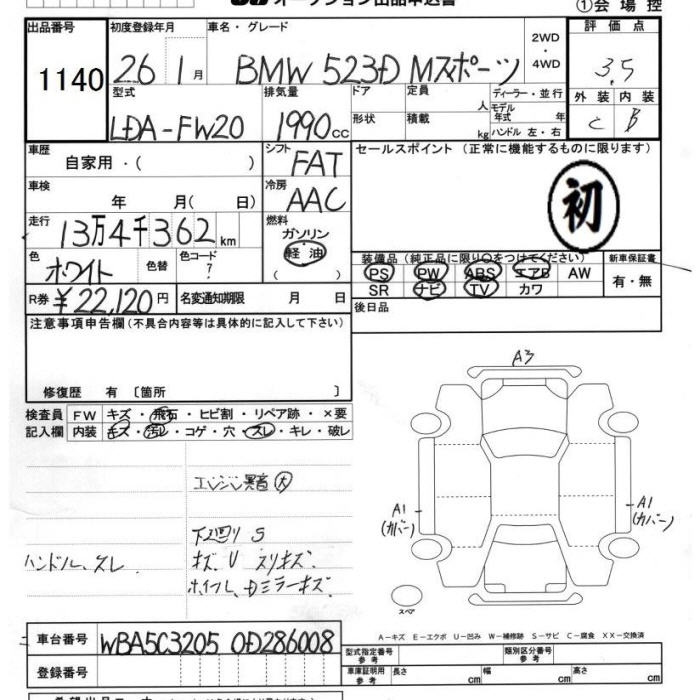 オークション出品申込書
①会場控
出品番号
1140
初度登録年月
26 1月
車名・グレード
BMW 523D Mスポーツ
2WD
・
4WD
評価点
3.5
外装 内装
C B
型式
LDA-FW20
排気量
1990cc
ドア
形状
定員
人
積載
kg
ディーラー・並行
モデル
年式 年
ハンドル 左・右
車歴
自家用・( )
シフト
FAT
セールスポイント (正常に機能するものに限ります)
初
車検
年 月( 日)
冷房
AAC
走行
13万4千362km
燃料
ガソリン
軽・油
( )
色
ホワイト
色替
色コード
?
装備品 (純正品に限り○をつけてください)
PS PW ABS エアB AW
SR ナビ TV カワ
新車保証書
有・無
R券 ¥22,120円
名変通知期限 月 日
後日品
注意事項申告欄(不具合内容等は具体的に記入して下さい)
修復歴 有 〔箇所 〕
検査員
記入欄
FW キズ・飛石・ヒビ割・リペア跡・×要
内装 キズ・汚レ・コゲ・穴・スレ・キレ・破レ
エンジン異音大
下廻り S
ハンドル、スレ
キズ、U スリキズ、
ホイール、Dミラーキズ
A3
A1
(カバー)
A1
(カバー)
スペア
A-キズ E-エクボ U-凹み W-補修跡 S-サビ C-腐食 XX-交換済
車台番号
WBA5C3205 0D286008
登録番号
型式指定番号
参考
類別区分番号
参考
車庫証明用
参考
長さ cm
幅 cm
高さ cm